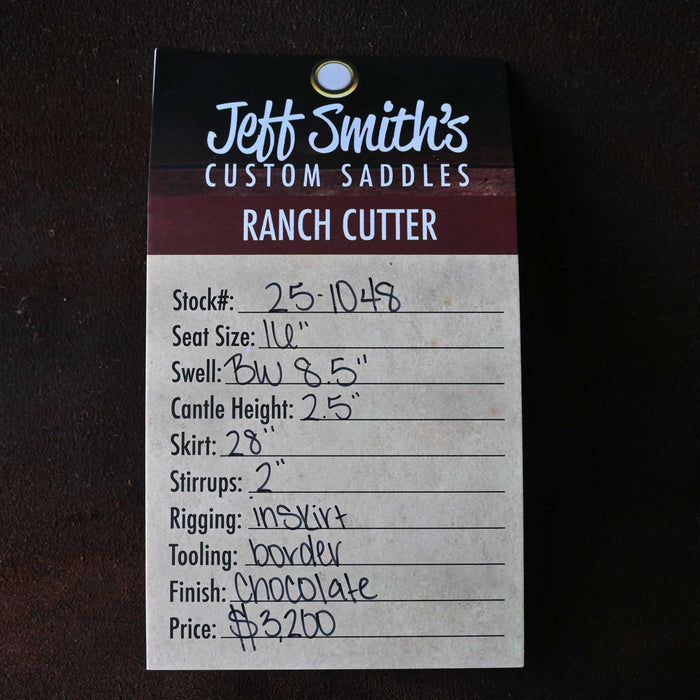 Jeff Smith's
CUSTOM SADDLES
RANCH CUTTER
Stock#: 25-1048
Seat Size: 16"
Swell: BW 8.5"
Cantle Height: 2.5"
Skirt: 28"
Stirrups: 2"
Rigging: inskirt
Tooling: border
Finish: Chocolate
Price: $3,200